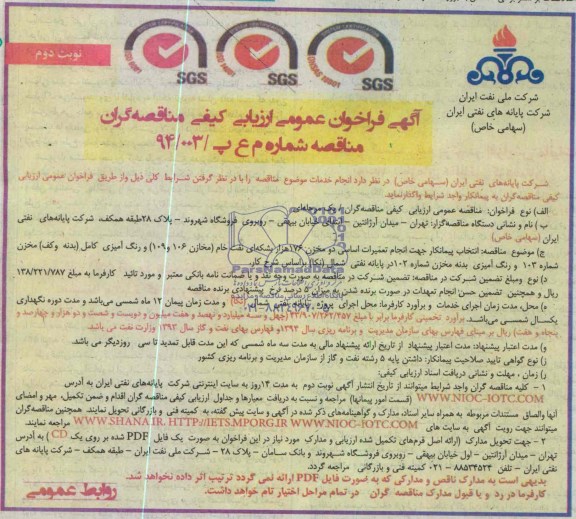 نوبت دوم
SGS
SGS
SGS
شرکت ملی نفت ایران
شرکت پایانه های نفتی ایران
(سهامی خاص)
آگهی فراخوان عمومی ارزیابی کیفی مناقصه‌گران
مناقصه شماره م ع پ /۹۴/۰۰۳
شرکت پایانه‌های نفتی ایران (سهامی خاص) در نظر دارد انجام خدمات موضوع مناقصه را با در نظر گرفتن شرایط کلی ذیل واز طریق فراخوان عمومی ارزیابی
کیفی مناقصه‌گران به پیمانکار واجد شرایط واگذارنماید.
الف) نوع فراخوان: مناقصه عمومی ارزیابی کیفی مناقصه‌گران / یک مرحله‌ای
ب) نام و نشانی دستگاه مناقصه‌گزار: تهران – میدان آرژانتین – بیهقی – روبروی فروشگاه شهروند – پلاک ۲۸ طبقه همکف، شرکت پایانه‌های نفتی
ایران (سهامی خاص)
ج) موضوع مناقصه: انتخاب پیمانکار جهت انجام تعمیرات اساسی دو مخزن ۱۷۶هزار بشکه‌ای نفت خام (مخازن ۱۰۶ و ۱۰۹) و رنگ آمیزی کامل (بدنه وکف) مخزن
شماره ۱۰۳ و رنگ آمیزی بدنه مخزن شماره ۱۰۲در پایانه نفتی شمال (نکا) براساس شرح کار.
د) نوع ومبلغ تضمین شرکت در مناقصه: تضمین شرکت در مناقصه به صورت وجه نقد و یا ضمانت نامه بانکی معتبر و مورد تائید کارفرما به مبلغ ۱۳۸/۲۲۱/۷۸۷
ریال و همچنین تضمین حسن انجام تعهدات در صورت برنده شدن به میزان ۵ درصد نرخ پیشنهادی برنده مناقصه
ه) محل، مدت زمان اجرای خدمات و برآورد کارفرما: محل اجرای پروژه پایانه نفتی شمال (نکا) و مدت زمان پیمان ۱۲ ماه شمسی می‌باشد و مدت دوره نگهداری
یکسال شمسی می‌باشد. برآورد تخمینی کارفرما برابر با مبلغ
پنجاه و هفت) ریال بر مبنای فهارس بهای سازمان مدیریت و برنامه ریزی سال ۱۳۹۴و فهارس بهای نفت و گاز سال ۱۳۹۳ وزارت نفت می باشد.
و) مدت اعتبار پیشنهاد: مدت اعتبار پیشنهاد از تاریخ ارائه پیشنهاد مالی به مدت سه ماه شمسی که این مدت قابل تمدید تا سی روزدیگر می باشد.
ز) نوع گواهی تایید صلاحیت پیمانکار: داشتن پایه ۵ رشته نفت و گاز از سازمان مدیریت و برنامه ریزی کشور
ژ) زمان ، مهلت و نشانی دریافت اسناد ارزیابی کیفی:
۱ – کلیه مناقصه گران واجد شرایط میتوانند از تاریخ انتشار آگهی نوبت دوم به مدت ۱۴روز به سایت اینترنتی شرکت پایانه‌های نفتی ایران به آدرس
WWW.NIOC-IOTC.COM (قسمت امور پیمانها) مراجعه و نسبت به دریافت معیارها و جداول ارزیابی کیفی مناقصه گران اقدام و ضمن تکمیل، مهر و امضای
آنها والصاق مستندات مربوطه به همراه سایر اسناد، مدارک و گواهینامه‌های ذکر شده در آگهی و سایت پیش گفته، به کمیته فنی و بازرگانی تحویل نمایند. همچنین مناقصه‌گران
میتوانند جهت رویت آگهی به سایت های WWW.NIOC-IOTC.COM و WWW.SHANA.IR. HTTP://IETS.MPORG.IR مراجعه نمایند.
۲ – جهت تحویل مدارک (ارائه اصل فرم‌های تکمیل شده ارزیابی و مدارک مورد نیاز در این فراخوان به صورت یک فایل PDF شده بر روی یک CD) به آدرس
تهران – میدان آرژانتین – اول خیابان بیهقی – روبروی فروشگاه شهروند و بانک سامان – پلاک ۲۸ – شرکت نفت ایران – طبقه همکف – شرکت پایانه های
نفتی ایران – تلفن ۸۸۵۳۴۵۲۳ – ۰۲۱ کمیته فنی و بازرگانی مراجعه گردد.
بدیهی است به مدارک ناقص و مدارکی که به صورت فایل PDF ارائه نمی گردد ترتیب اثر داده نخواهد شد.
کارفرما در رد و یا قبول مدارک مناقصه گران در تمام مراحل اختیار تام خواهد داشت.
روابط عمومی
ParsNamadData